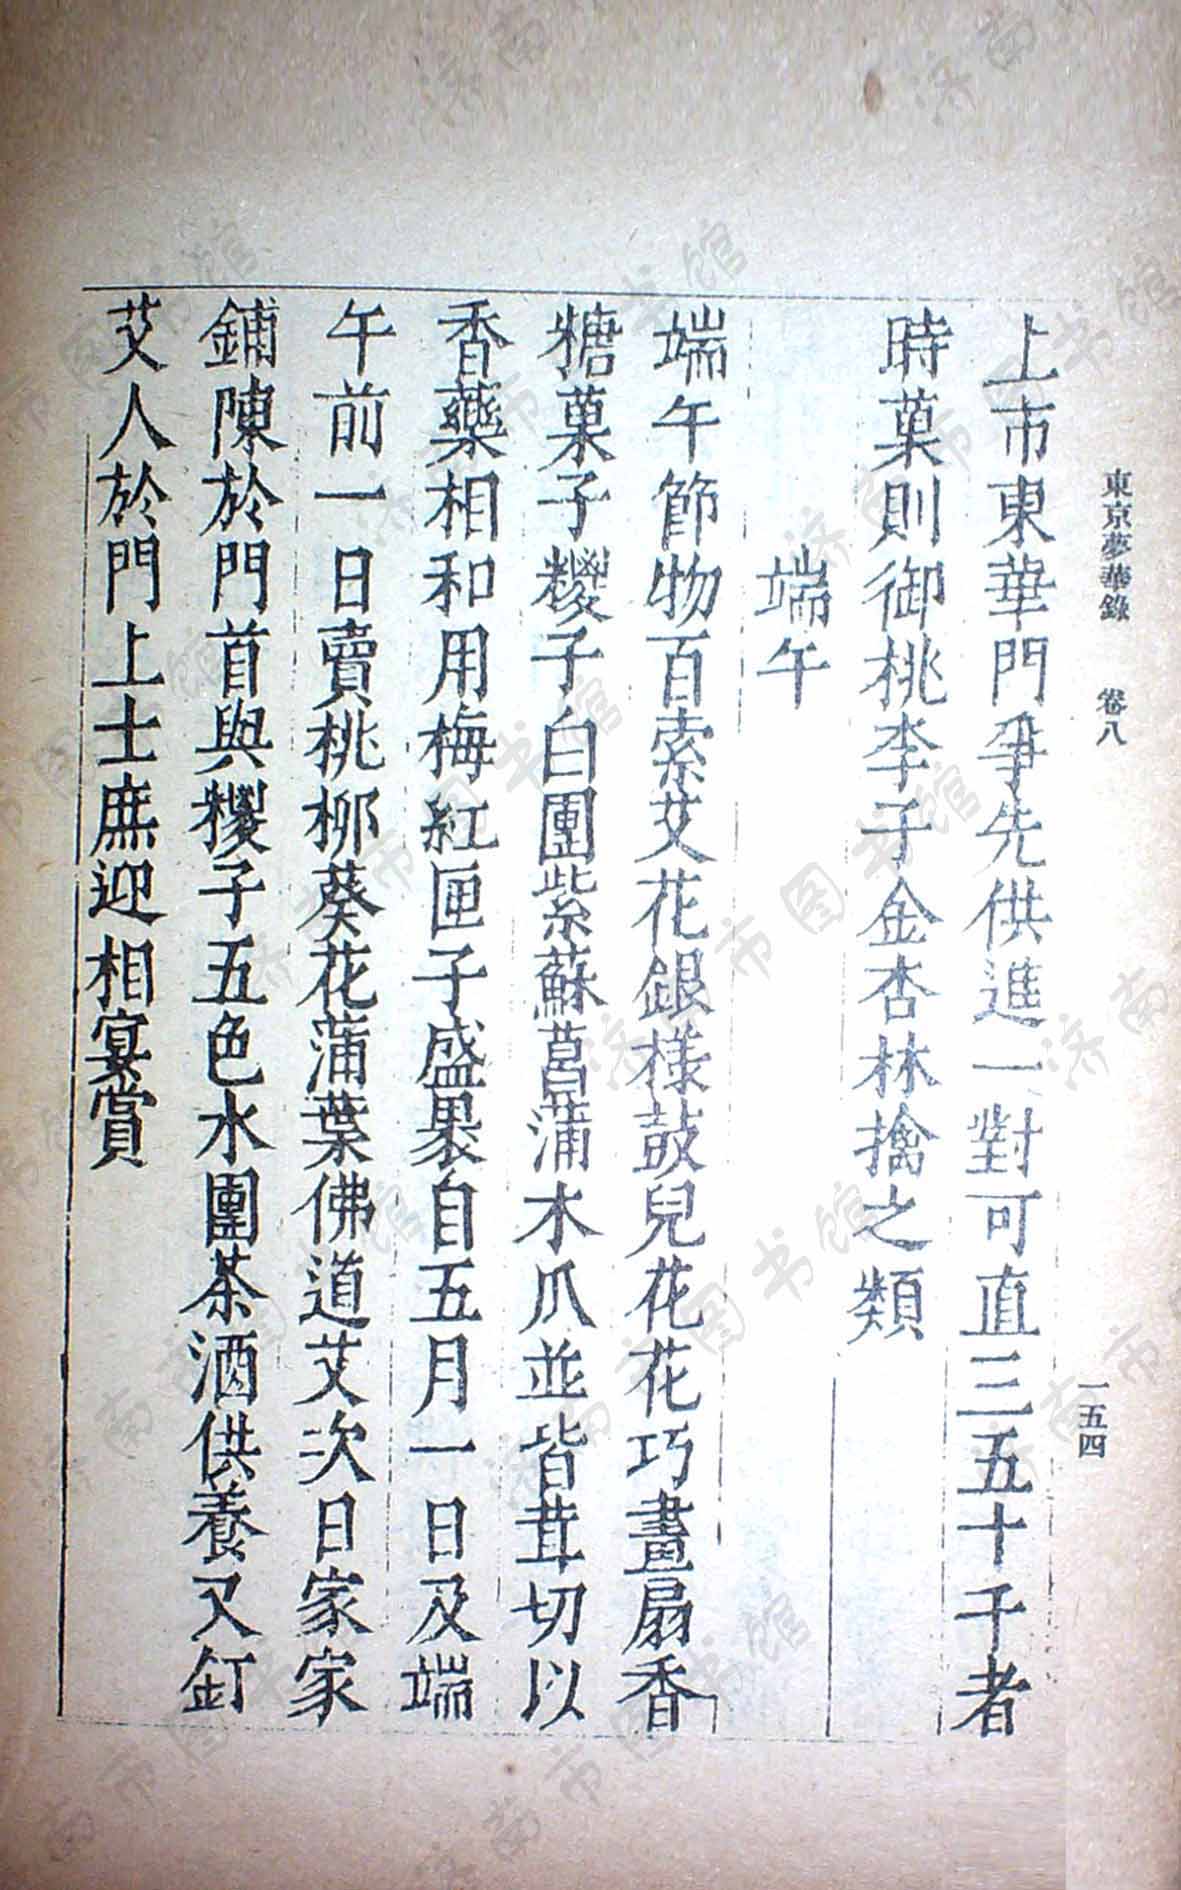 東京夢華錄 卷八 一五四
上市東華門爭先供進一對可直三五十千者
時菓則御桃李子金杏林擒之類
端午
端午節物百索艾花銀樣鼓兒花花巧畫扇香
糖菓子糉子白團紫蘇菖蒲木瓜並皆茸切以
香藥相和用梅紅匣子盛褁自五月一日及端
午前一日賣桃柳葵花蒲葉佛道艾次日家家
鋪陳於門首與糉子五色水團茶酒供養又釘
艾人於門上士庶迎相宴賞
济南市图书馆